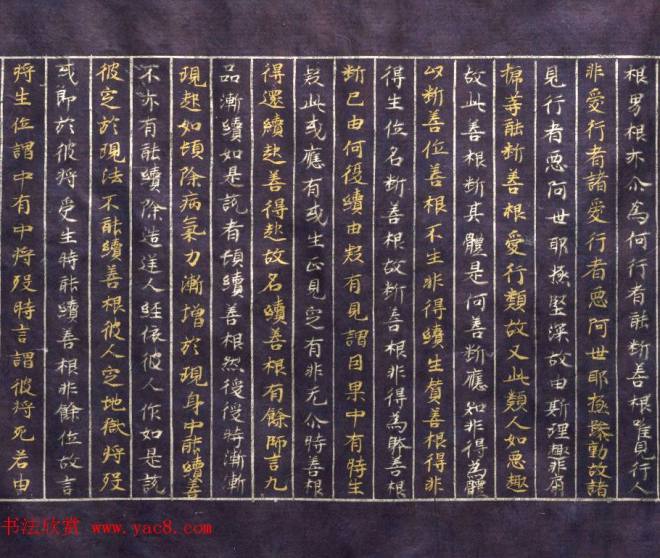 根男根亦尒為何行者能断善根唯見行人
非愛行者諸愛行者惡阿世耶極躁動故諸
見行者惡阿世耶極堅深故由斯理趣非扇
搋等能断善根愛行類故又此類人如惡趣
故此善根断其體是何善断應知非得為體
以断善位善根不生非得續生替善根得非
得生位名断善根故断善根非得為體善根
断已由何復續由疑有見謂因果中有時生
疑此或應有或生正見定有非无尒時善根
得還續起善得起故名續善根有餘師言九
品漸續如是說者頓續善根然後後時漸漸
現起如頓除病氣力漸增於現身中能續善
不亦有能續除造逆人經依彼人作如是說
彼定於現法不能續善根彼人定地獄將歿
或即於彼將受生時能續善根非餘位故言
將生位謂中有中將歿時言謂彼將死若由
书法欣赏 www.yac8.com